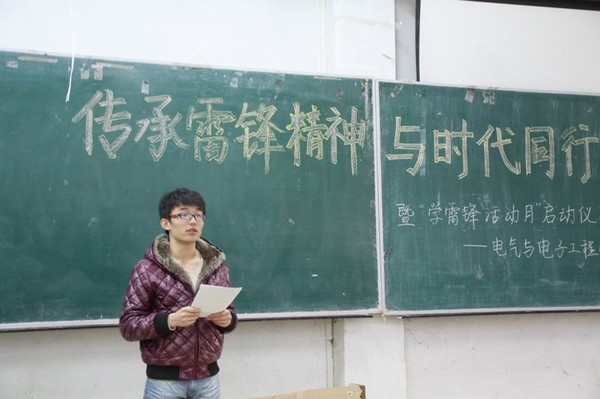 传承雷锋精神 与时代同行
暨“学雷锋活动月”启动仪
——电气与电子工程